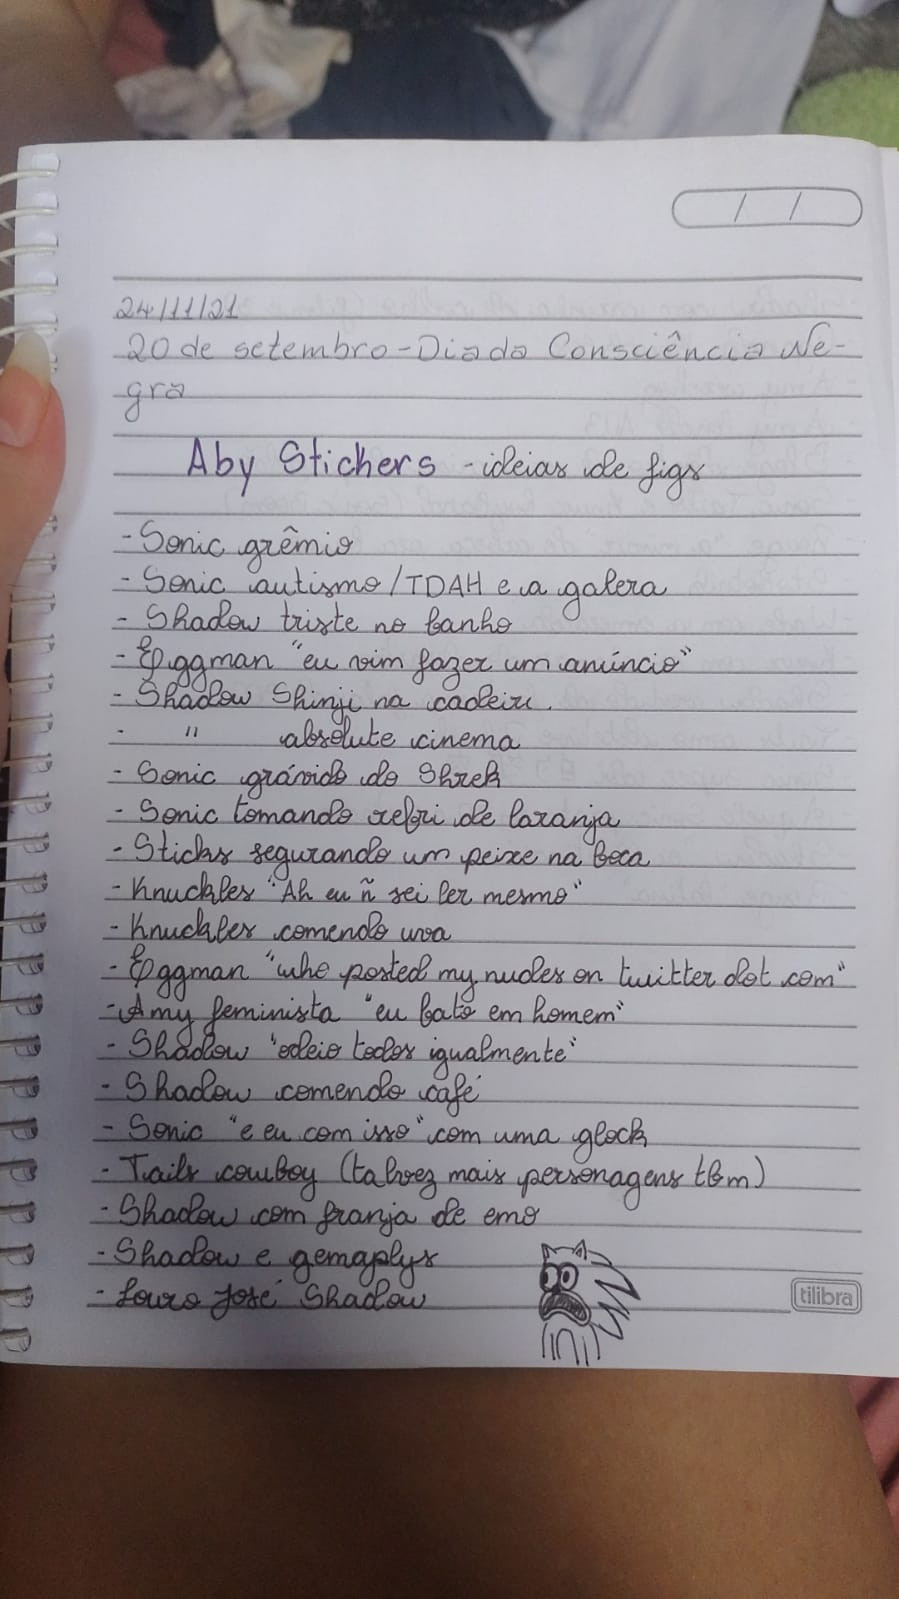 24/11/21
20 de setembro - Dia da Consciência Ne-
gra
Aby Stickers - ideias de figs
- Sonic grêmio
- Sonic autismo/TDAH e a galera
- Shadow triste no banho
- Eggman "eu vim fazer um anúncio"
- Shadow Shinji na cadeira
- " absolute cinema
- Sonic grávido do Shrek
- Sonic tomando refri de laranja
- Sticks segurando um peixe na boca
- Knuckles "Ah eu ñ sei ler mesmo"
- Knuckles comendo uva
- Eggman "who posted my nudes on twitter dot com"
- Amy feminista "eu bato em homem"
- Shadow "odeio todos igualmente"
- Shadow comendo café
- Sonic "e eu com isso" com uma glock
- Tails cowboy (talvez mais personagens tbm)
- Shadow com franja de emo
- Shadow e gemaplys
- Louro José Shadow
tilibra